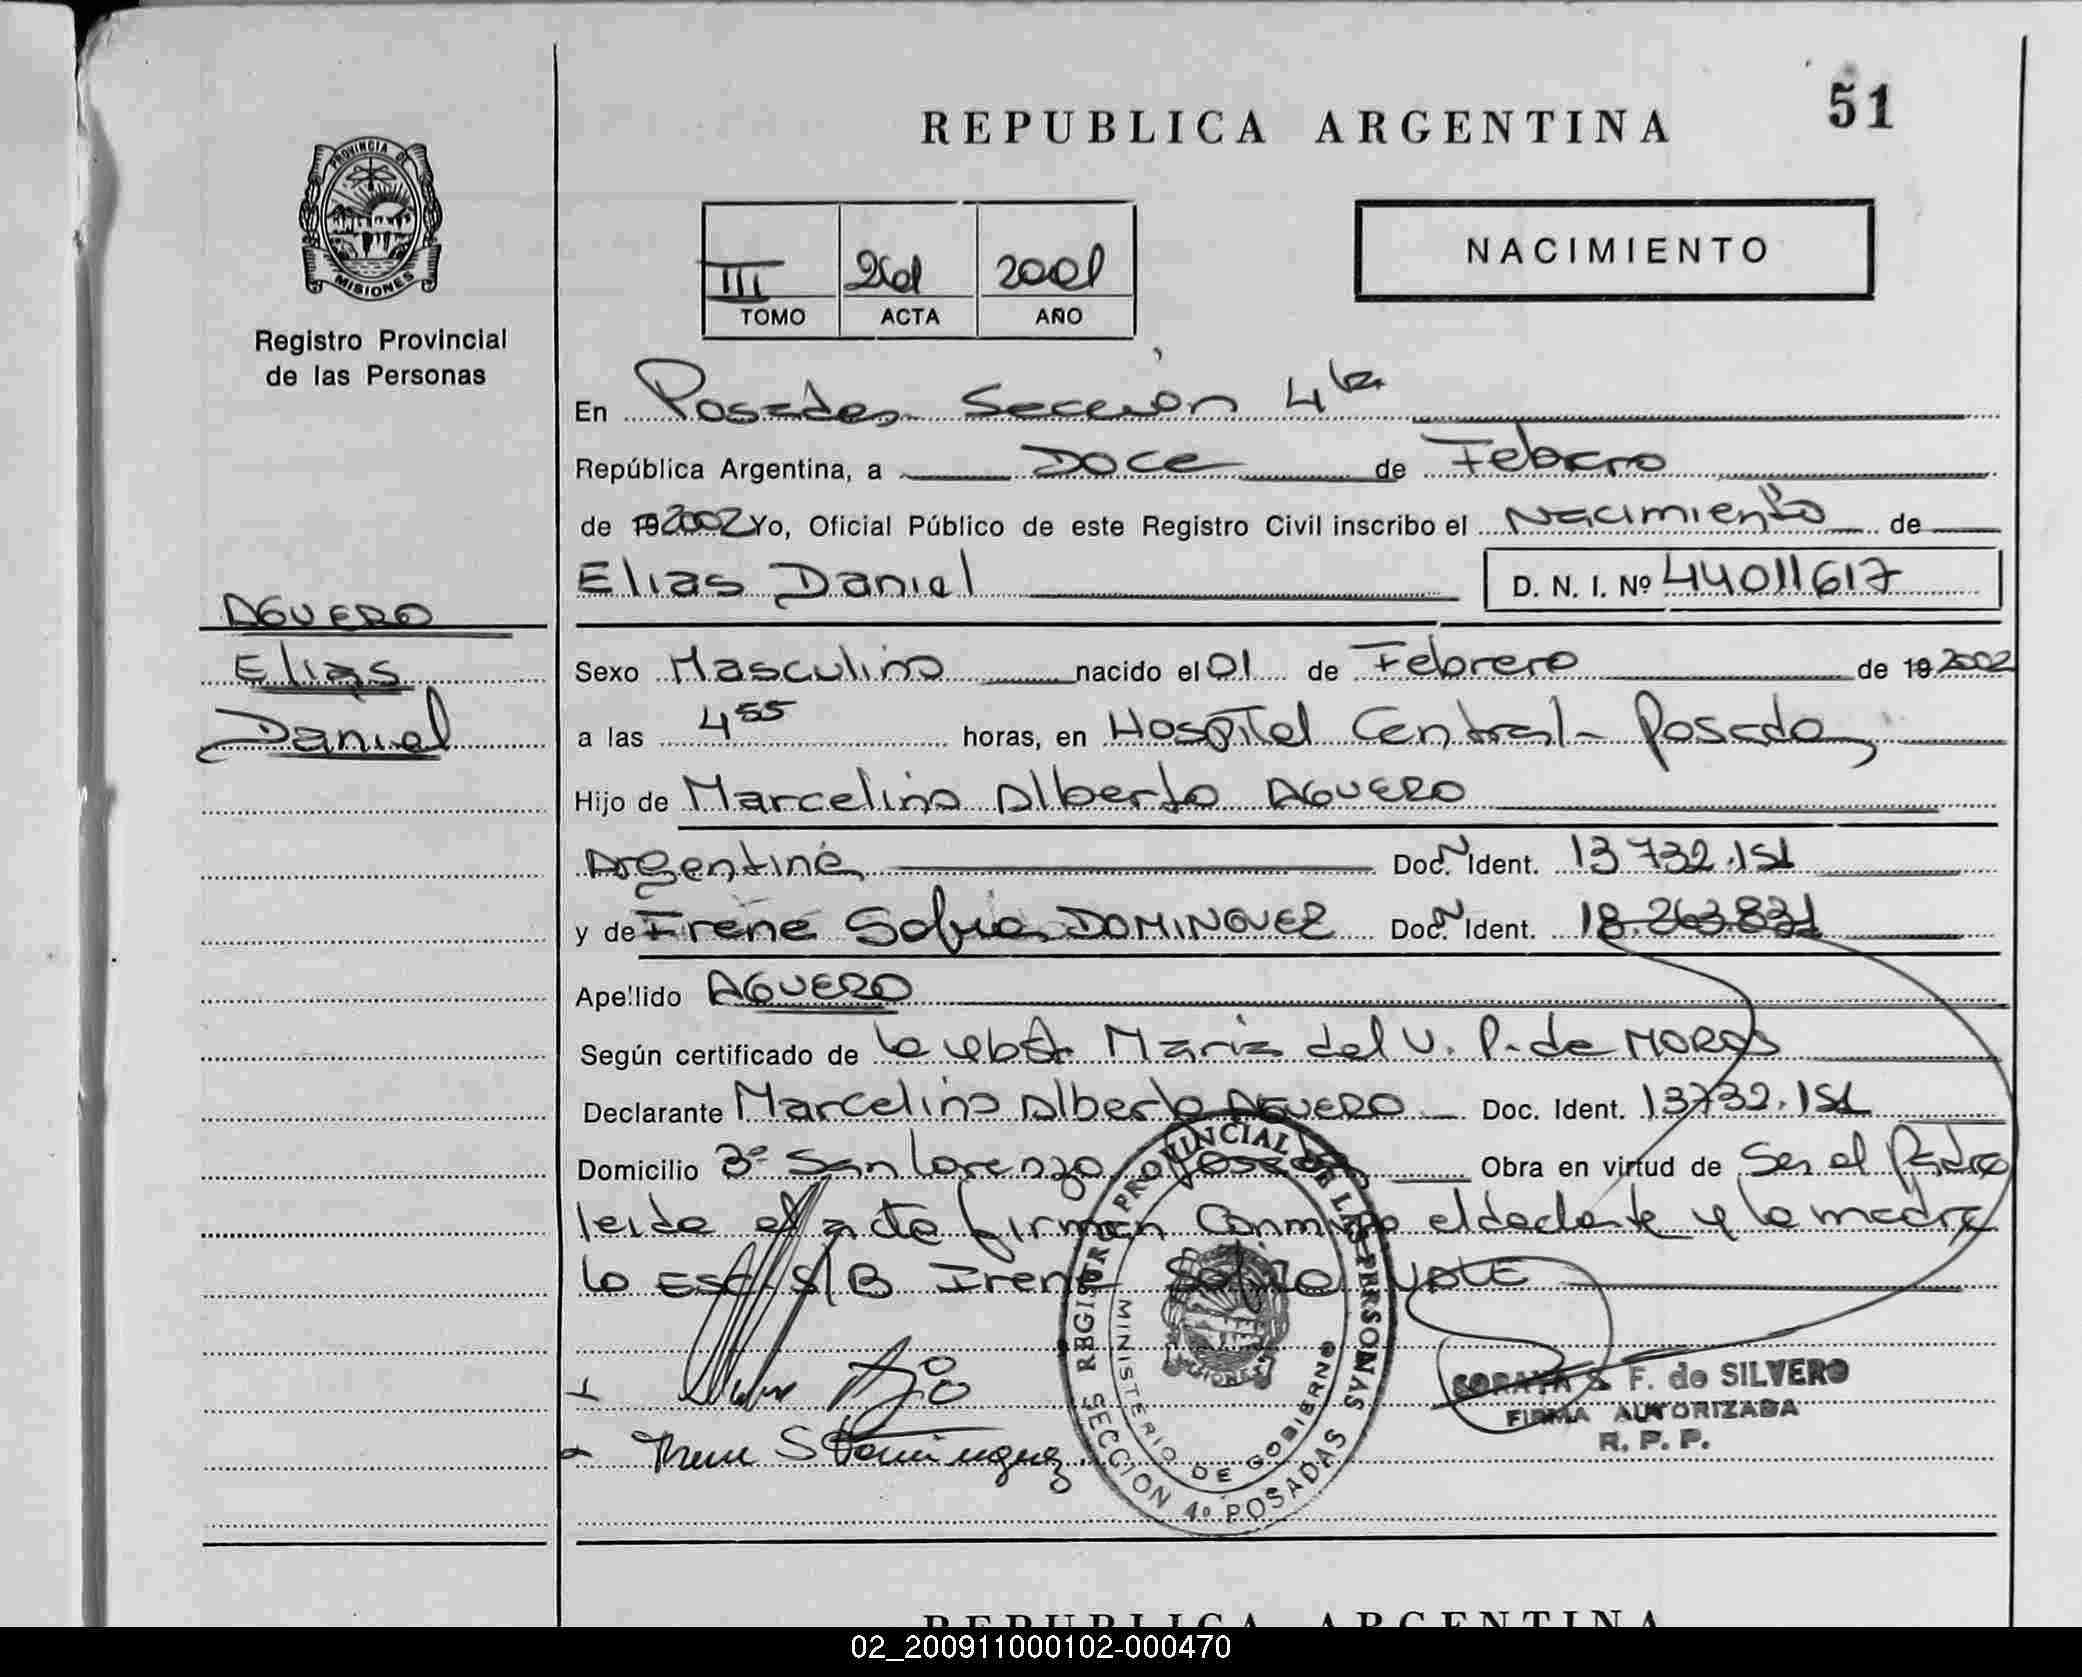 REPUBLICA ARGENTINA
51
PROVINCIA DE
MISIONES
Registro Provincial
de las Personas
NACIMIENTO
III
TOMO ACTA AÑO
En Posadas Sección 4ta
República Argentina, a Doce de Febrero
de 19 2002 Yo, Oficial Público de este Registro Civil inscribo el Nacimiento de
Elias Daniel D. N. I. Nº 44011617
AGUERO
Elias
Daniel
Sexo Masculino nacido el 01 de Febrero de 19 2002
a las 4 55 horas, en Hospital Central - Posadas
Hijo de Marcelino Alberto AGUERO
Argentina Doc. N Ident. 13 732.151
y de Irene Sofia DOMINGUEZ Doc. N Ident. 18.263.831
Apellido AGUERO
Según certificado de la Obst. Maria del V. P. de MOROS
Declarante Marcelino Alberto AGUERO Doc. Ident. 13732.151
Domicilio Bº San Lorenzo Posadas Obra en virtud de Ser el Padre
leida el acta firman Conmigo el declante y la madre
lo Esc. S/B Irene Sofia VALE
REGISTRO PROVINCIAL DE LAS PERSONAS
MINISTERIO DE GOBIERNO
MISIONES
SECCION 4º POSADAS
SORAYA S. F. de SILVERO
FIRMA AUTORIZADA
R. P. P.
Irene S Dominguez
REPUBLICA ARGENTINA
02_200911000102-000470